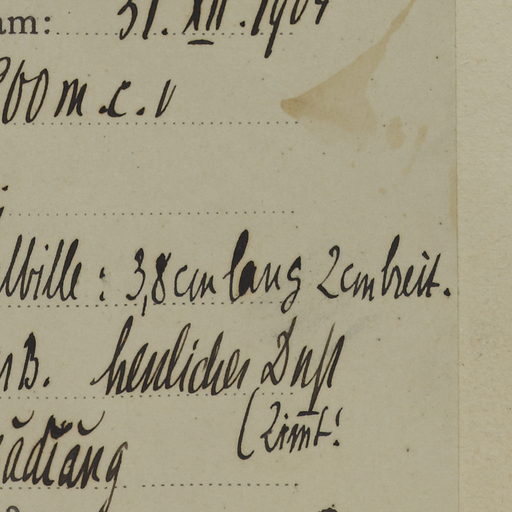 am: 31. XII. 1904
800 m.c.v
lbille: 3,8 cm lang 2 cm breit.
B. herrlicher Duft
(Zimt!
ădĭăng